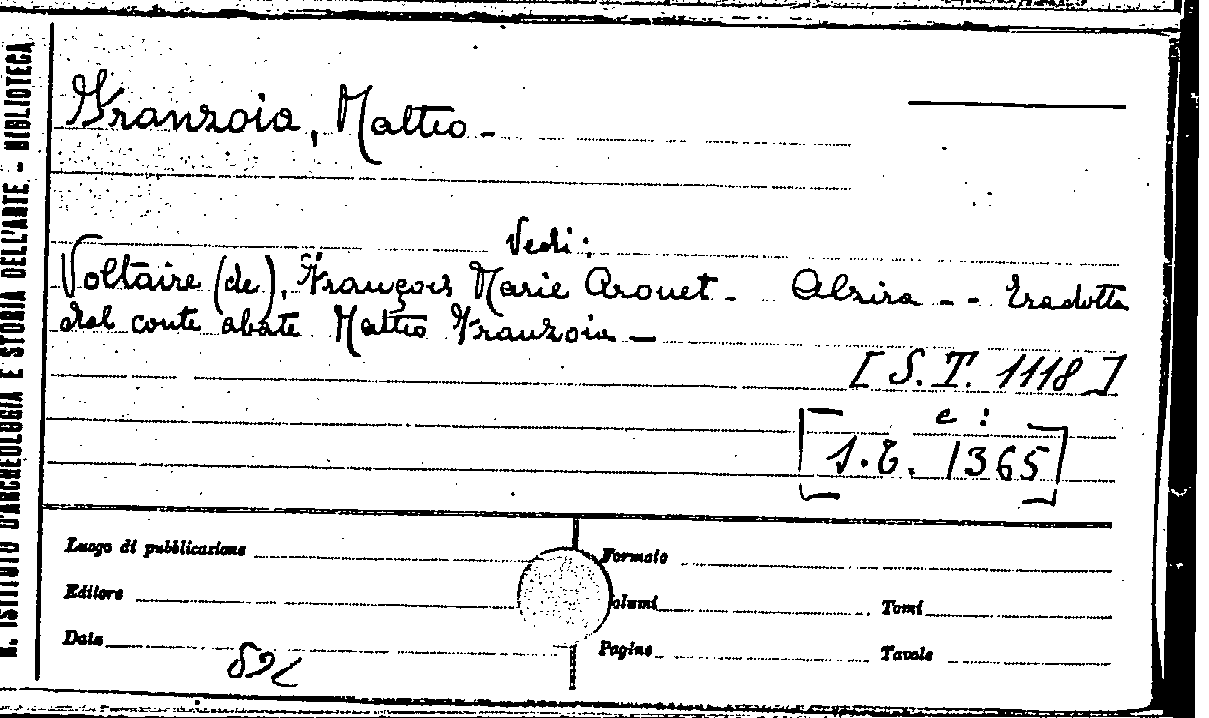 R. ISTITUTO D'ARCHEOLOGIA E STORIA DELL'ARTE - BIBLIOTECA
Franzoia, Matteo -
Vedi:
Voltaire (de), François Marie Arouet - Alzira - - Tradotta
dal conte abate Matteo Franzoia -
[S.T. 1118]
e:
[S.T. 1365]
Luogo di pubblicazione
Formato
Editore
olumi
Tomi
Data
Pagine
Tavole